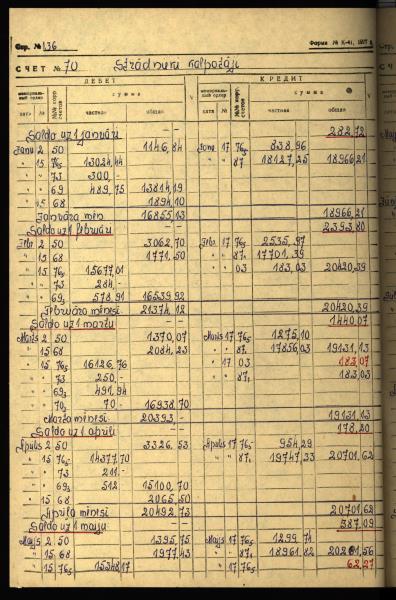 Стр. № 136
Форма № К-41, 1977 г.
СЧЕТ № 70 Strādnieki kalpotāji
ДЕБЕТ КРЕДИТ
мемориальный ордер №№ корр. счетов сумма V мемориальный ордер №№ корр. счетов сумма V
дата № частная общая дата № частная общая
Saldo uz 1 janvāri - - 282,72
Janv 2 50 1146,84 Janv 17 76₅ 838,96
" 15 76₅ 13024,44 " " 87₁ 18127,25 18966,21
" " 73 300,-
" " 69 489,75 13814,19
" 15 68 1894,10
Janvāra mēn 16855,13 18966,21
Saldo uz 1 februāri - - 2393,80
Febr. 2 50 3062,70 Febr. 17 76₅ 2535,97
" 15 68 1771,50 " " 87₁ 17701,39
" 15 76₅ 15677,01 " " 03 183,03 20420,39
" " 73 284,-
" " 69₃ 578,91 16539,92
Februāra mēnesi 21374,12 20420,39
Saldo uz 1 martu - - 1440,07
Marts 2 50 1370,07 Marts 17 76₅ 1275,10
" 15 68 2084,23 " " 87₁ 17856,03 19131,13
" 15 76₅ 16126,76 " 17 03 183,07
" " 73 250,- " " 87₁ 183,03
" " 69₃ 491,94
" " 70₃ 70- 16938,70
Marta mēnesi 20393- 19131,13
Saldo uz 1 aprīli - - 178,20
Aprīlis 2 50 3326,53 Aprīlis 17 76₅ 954,29
" 15 76₅ 14377,70 " " 87₁ 19747,33 20701,62
" " 73 211,-
" " 69₃ 512 15100,70
" 15 68 2065,50
Aprīļa mēnesi 20492,73 20701,62
Saldo uz 1 maiju - - 387,09
Maijs 2 50 1395,75 Maijs 17 76₅ 1299,74
" 15 68 1977,43 " " 87₁ 18961,82 20261,56
" 15 76₅ 15348,17 " 17 76₅ 62,27